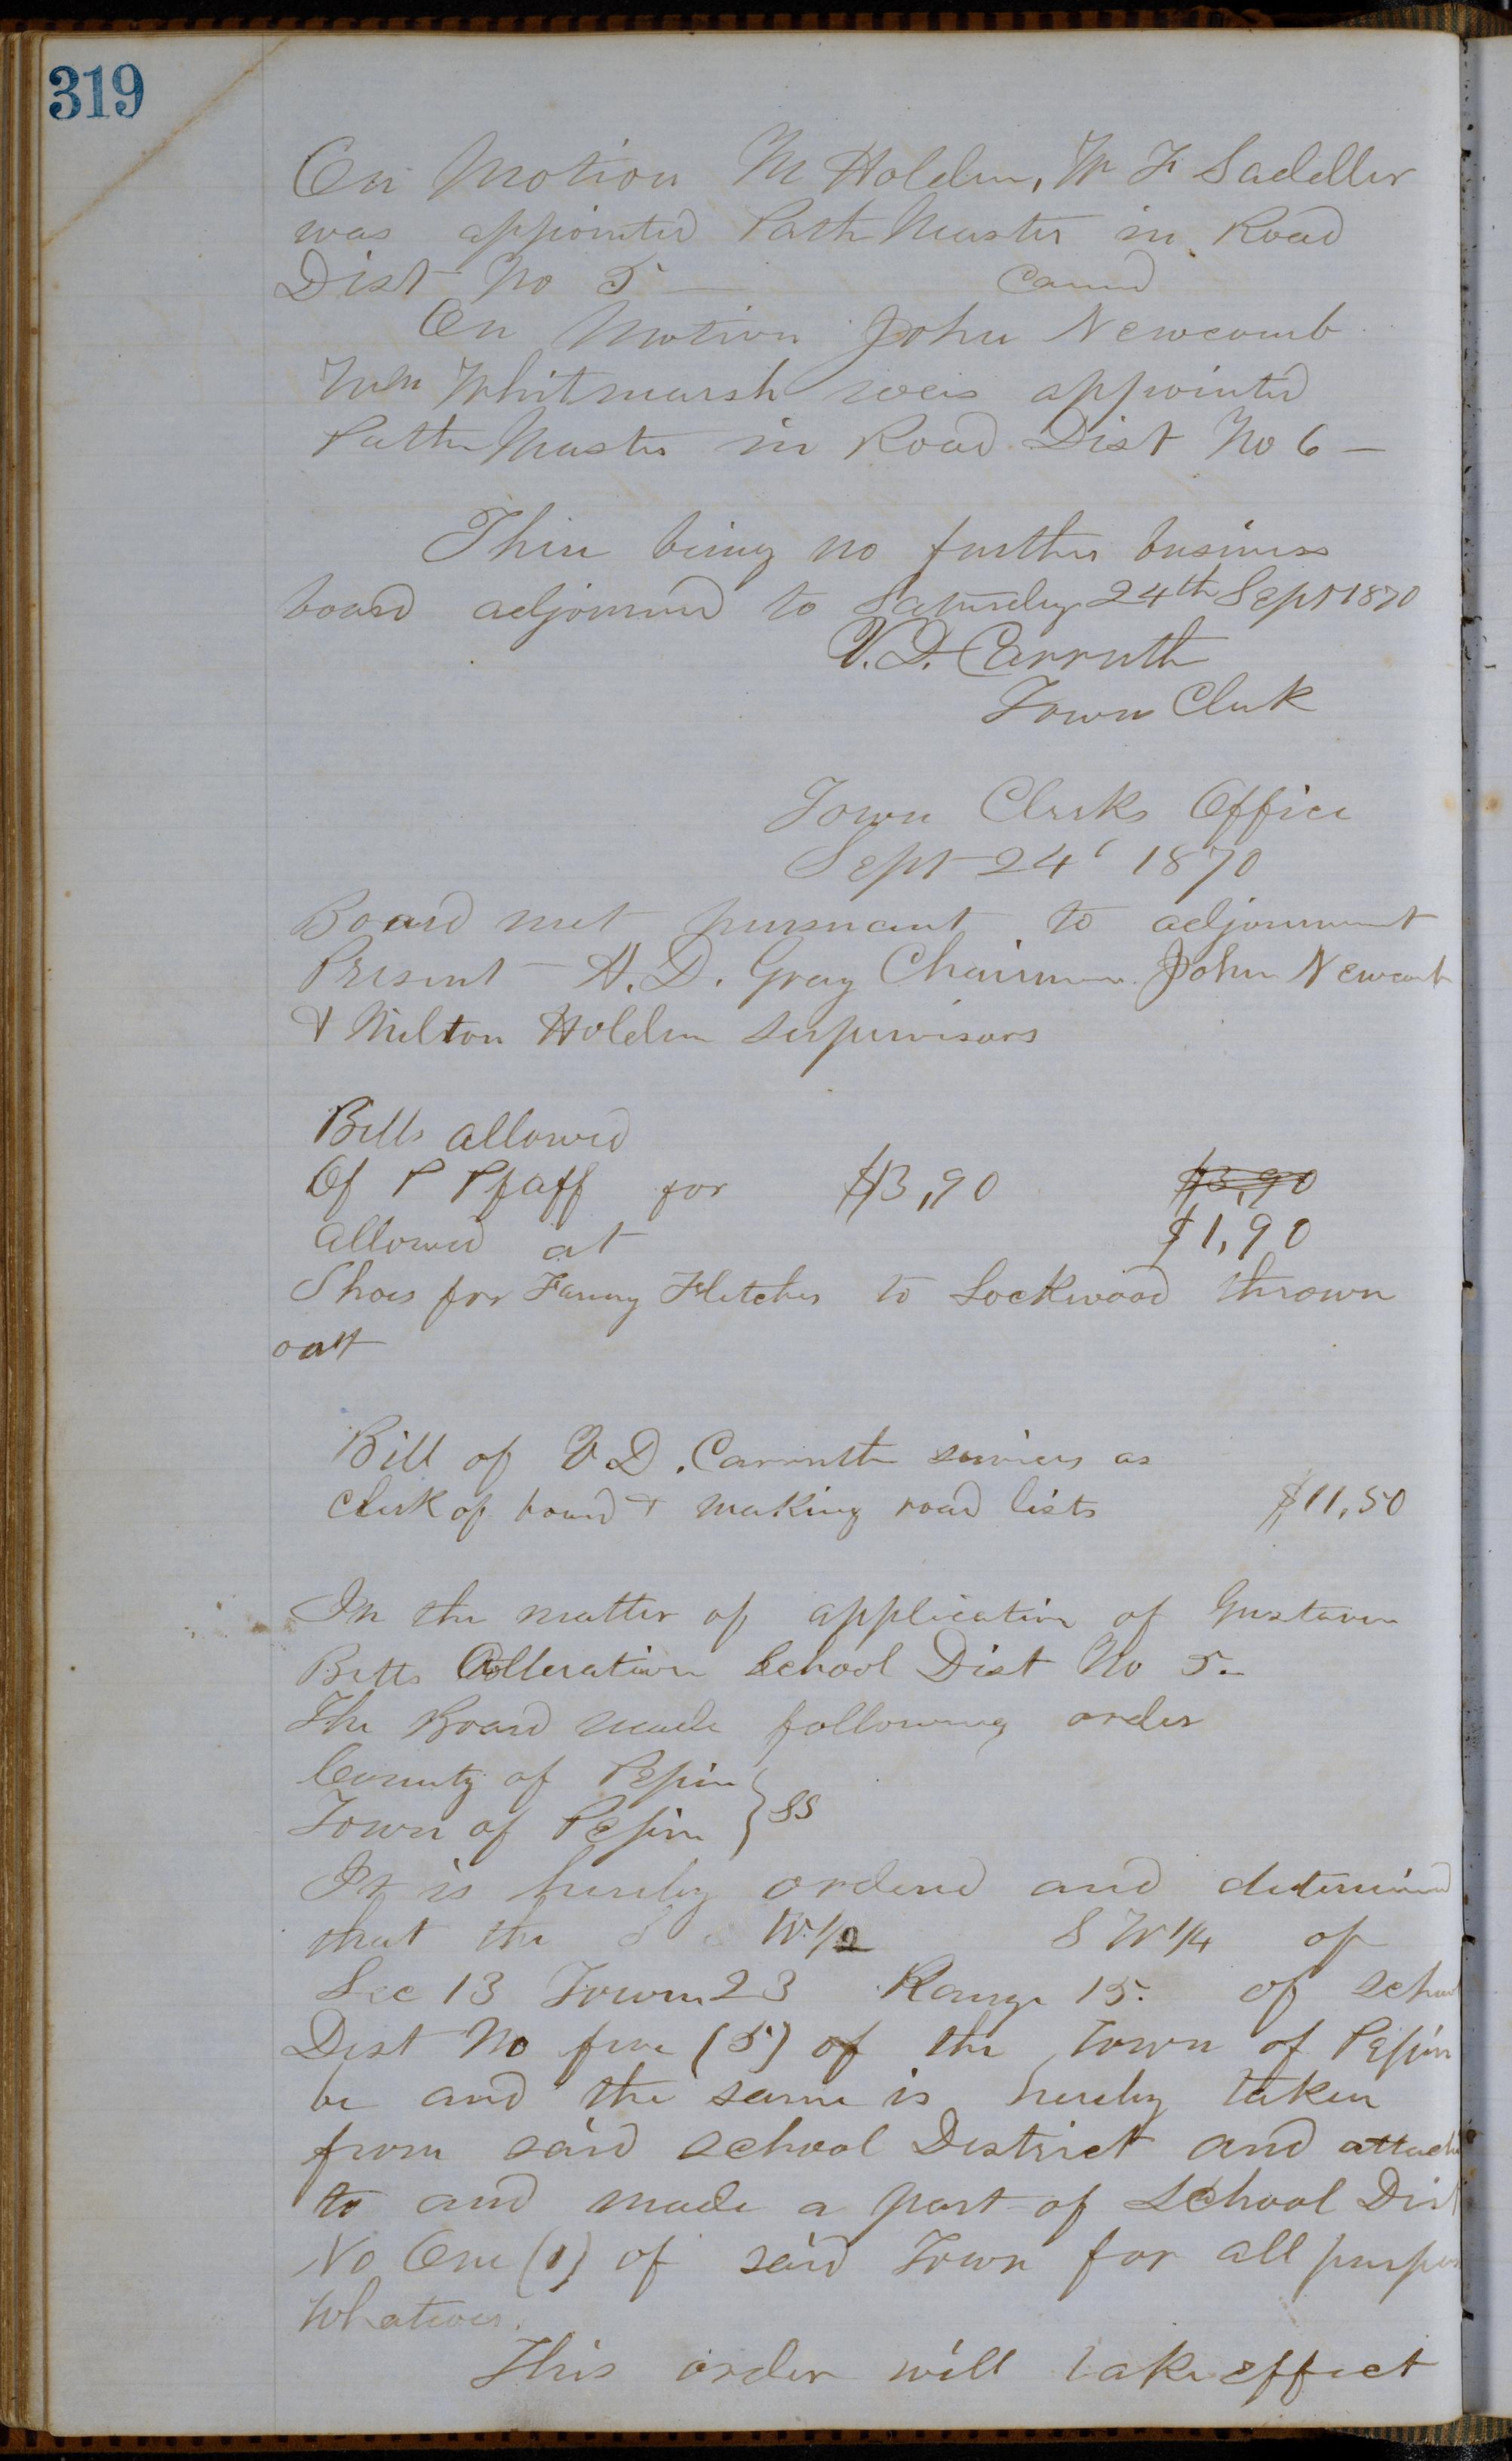 319
On Motion M Holden, W F Sadeller
was appointed Path Master in Road
Dist No 5 — Carried
On Motion John Newcomb
Wm Whitmarsh was appointed
Path Master in Road Dist No 6 —
There being no further business
board adjourned to Saturday 24th Sept 1870
V. D. Carruth
Town Clerk
Town Clerks Office
Sept 24' 1870
Board met pursuant to adjournment
Present — A. D. Gray Chairman John Newcomb
& Milton Holden Supervisors
Bills allowed
Of P Pfaff for $3,90 $3,90
allowed at $1,90
Shoes for Fanny Fletcher to Lockwood thrown
out
Bill of V D. Carruth services as
clerk of board & making road lists $11,50
In the matter of application of Gustave
Betts Alteration School Dist No 5 —
The Board made following order
County of Pepin } SS
Town of Pepin
It is hereby ordered and determined
that the W. 1/2 S W 1/4 of
Sec 13 Town 23 Range 15. of School
Dist No five (5) of the Town of Pepin
be and the same is hereby taken
from said school District and attach
to and made a part of School Dist
No One (1) of said Town for all purpos
Whatever.
This order will take effect